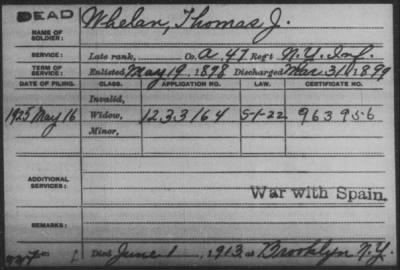 DEAD
NAME OF SOLDIER: Whelan, Thomas J.
SERVICE: Late rank, Co. A, 47 Reg't N.Y. Inf.
TERM OF SERVICE: Enlisted May 19, 1898 Discharged Mar 31, 1899
DATE OF FILING. CLASS. APPLICATION NO. LAW. CERTIFICATE NO.
Invalid,
1925 May 16 Widow, 1233164 5-1-22 963956
Minor,
ADDITIONAL SERVICES:
War with Spain.
REMARKS:
Died June 1, 1913, at Brooklyn N.Y.